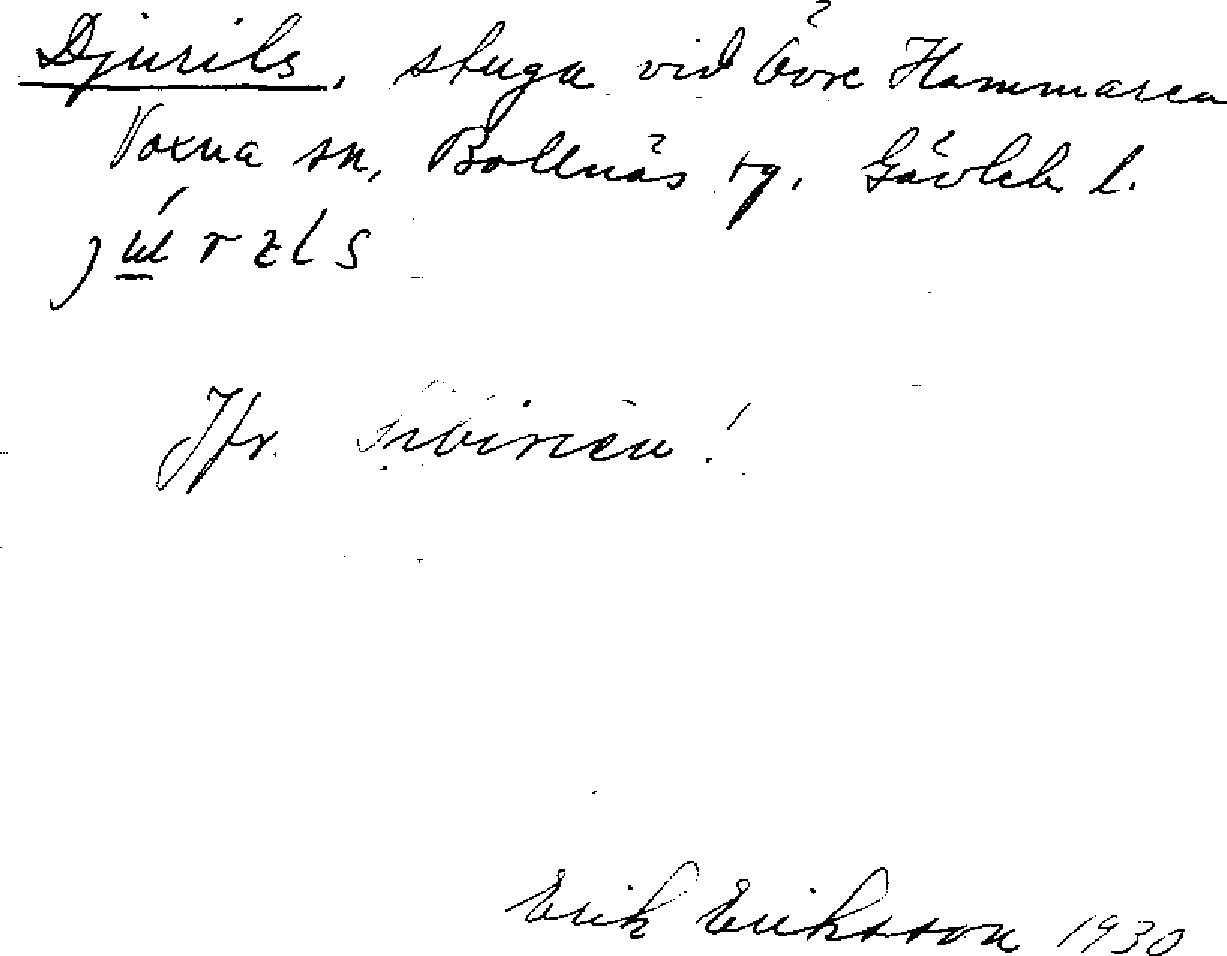 Djurils, stuga vid Övre Hammaren
Voxna sn, Bollnäs tg. Gävleb. l.
Jfr. Sibirien!
Erik Eriksson 1930